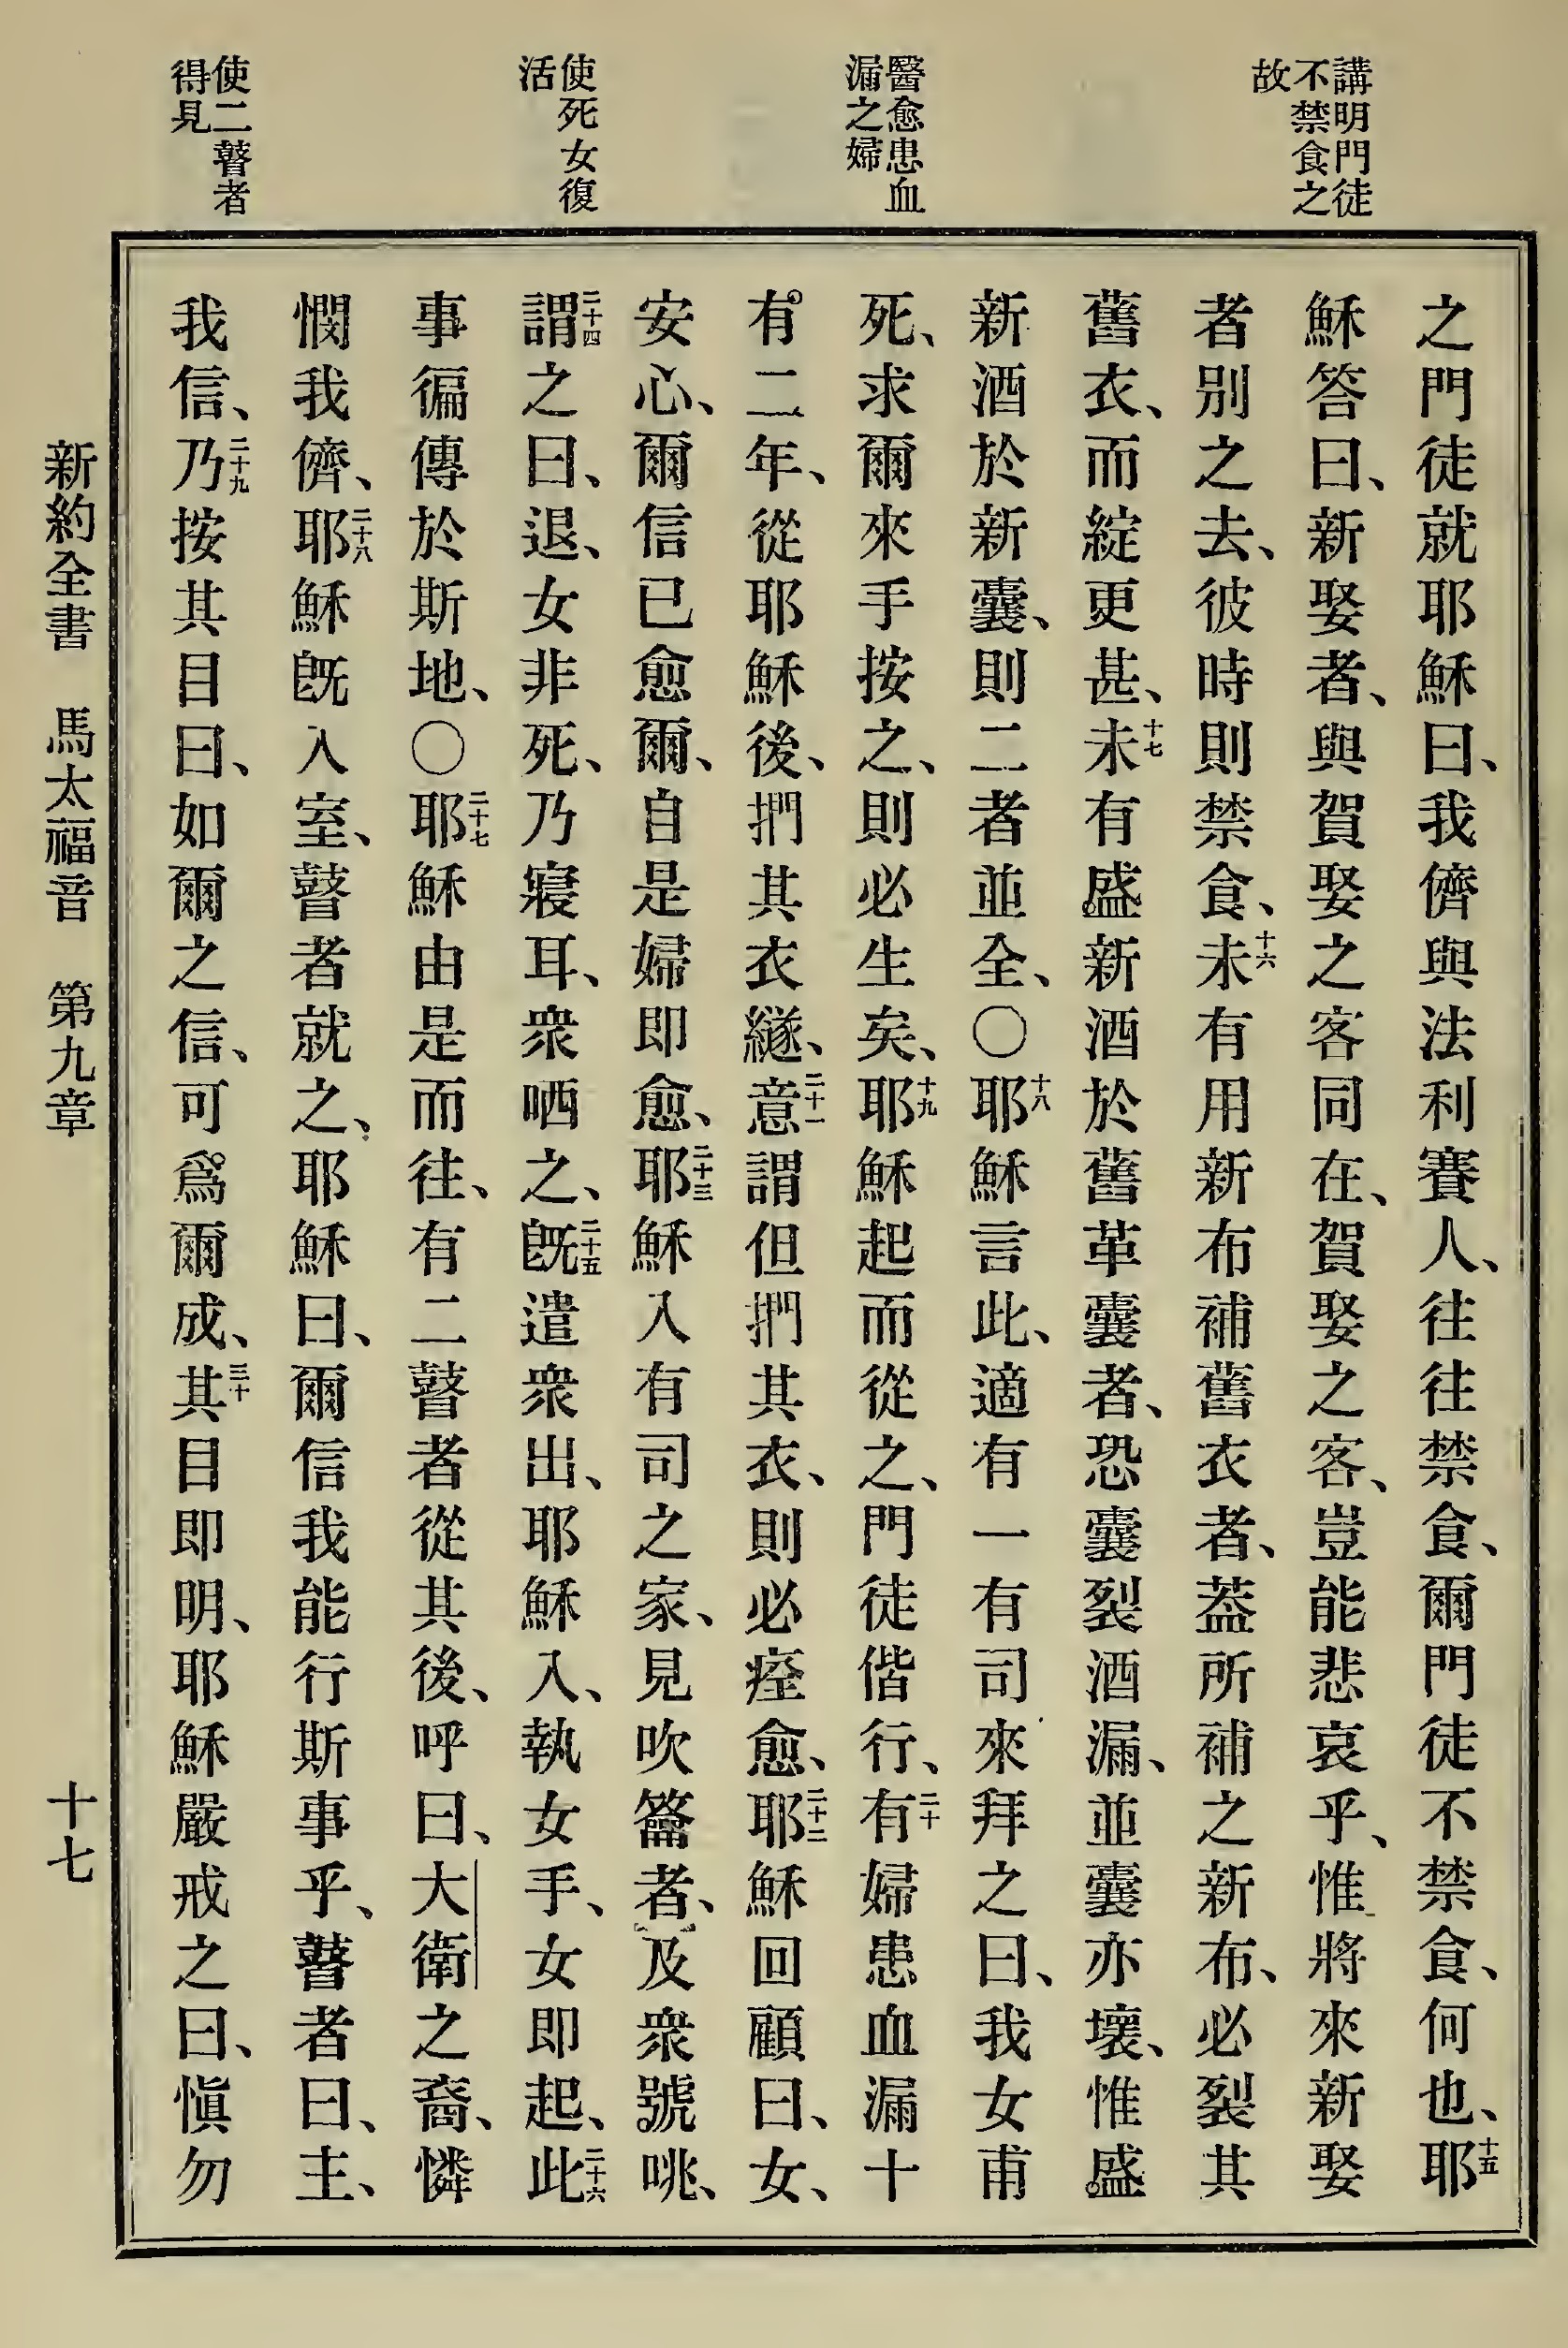 講明門徒
不禁食之
故
醫愈患血
漏之婦
使死女復
活
使二瞽者
得見
之門徒就耶穌曰、我儕與法利賽人、往往禁食、爾門徒不禁食、何也、十五耶
穌答曰、新娶者、與賀娶之客同在、賀娶之客、豈能悲哀乎、惟將來新娶
者別之去、彼時則禁食、十六未有用新布補舊衣者、葢所補之新布、必裂其
舊衣、而綻更甚、十七未有盛新酒於舊革囊者、恐囊裂酒漏、並囊亦壞、惟盛
新酒於新囊、則二者並全、〇十八耶穌言此、適有一有司來拜之曰、我女甫
死、求爾來手按之、則必生矣、十九耶穌起而從之、門徒偕行、二十有婦患血漏十
有二年、從耶穌後、捫其衣繸、二十一意謂但捫其衣、則必痊愈、二十二耶穌回顧曰、女、
安心、爾信已愈爾、自是婦即愈、二十三耶穌入有司之家、見吹籥者、及衆號咷、
二十四謂之曰、退、女非死、乃寢耳、衆哂之、二十五旣遣衆出、耶穌入、執女手、女即起、二十六此
事徧傳於斯地、〇二十七耶穌由是而往、有二瞽者從其後、呼曰、大衛之裔、憐
憫我儕、二十八耶穌旣入室、瞽者就之、耶穌曰、爾信我能行斯事乎、瞽者曰、主、
我信、二十九乃按其目曰、如爾之信、可爲爾成、三十其目即明、耶穌嚴戒之曰、愼勿
新約全書 馬太福音 第九章 十七